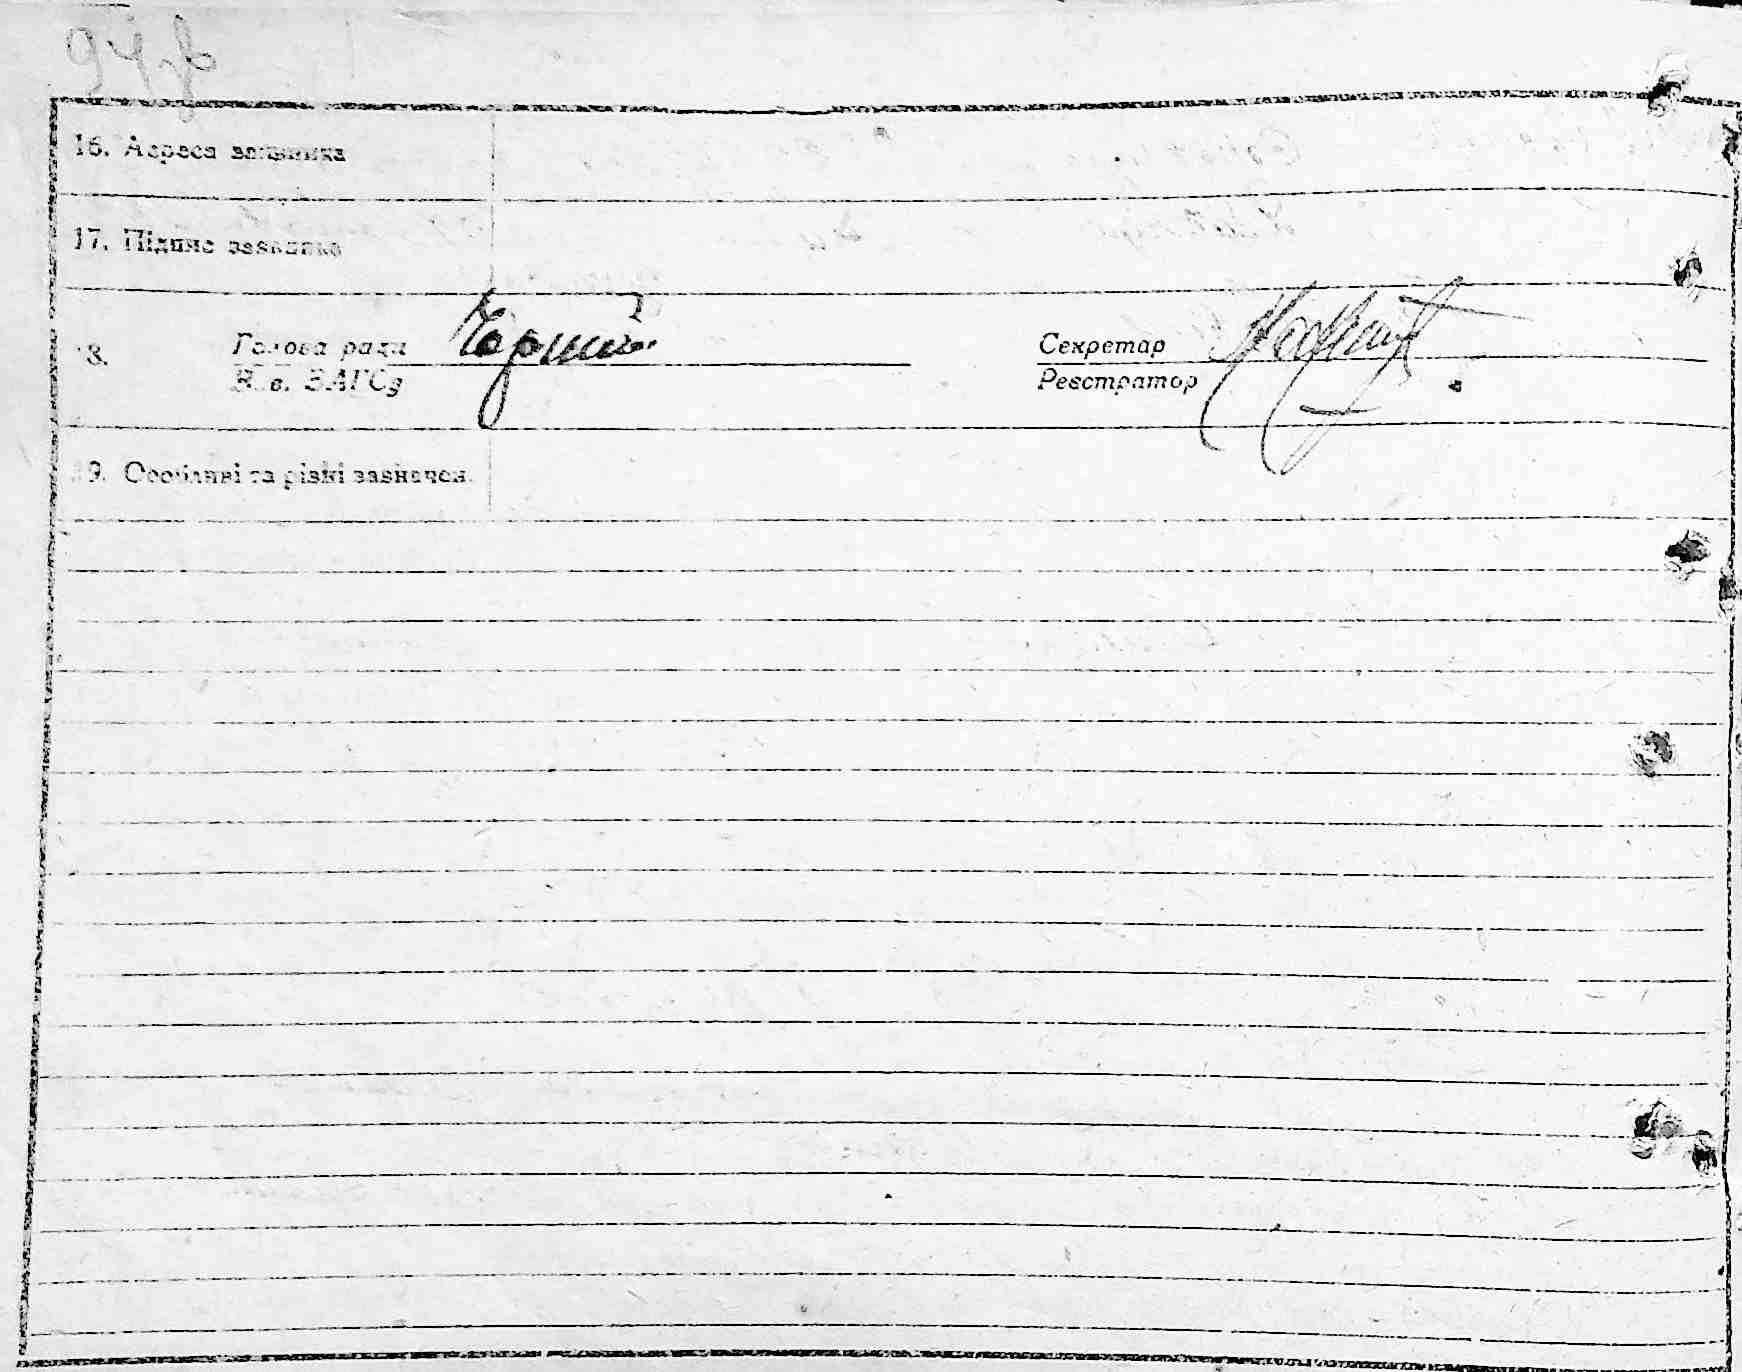 94зв
16. Адреса заявника
17. Підпис заявника
18. Голова ради Чорний Секретар
Зав. ЗАГСу Реєстратор
19. Особливі та різні зазначен.